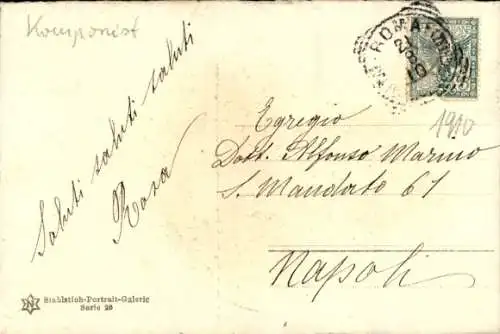 Komponist
ROMA
10
1910
Saluti saluti saluti
Rosa
Egregio
Dott. Alfonso Marino
S. Mandato 61
Napoli
N
Stahlstich-Portrait-Galerie
Serie 26